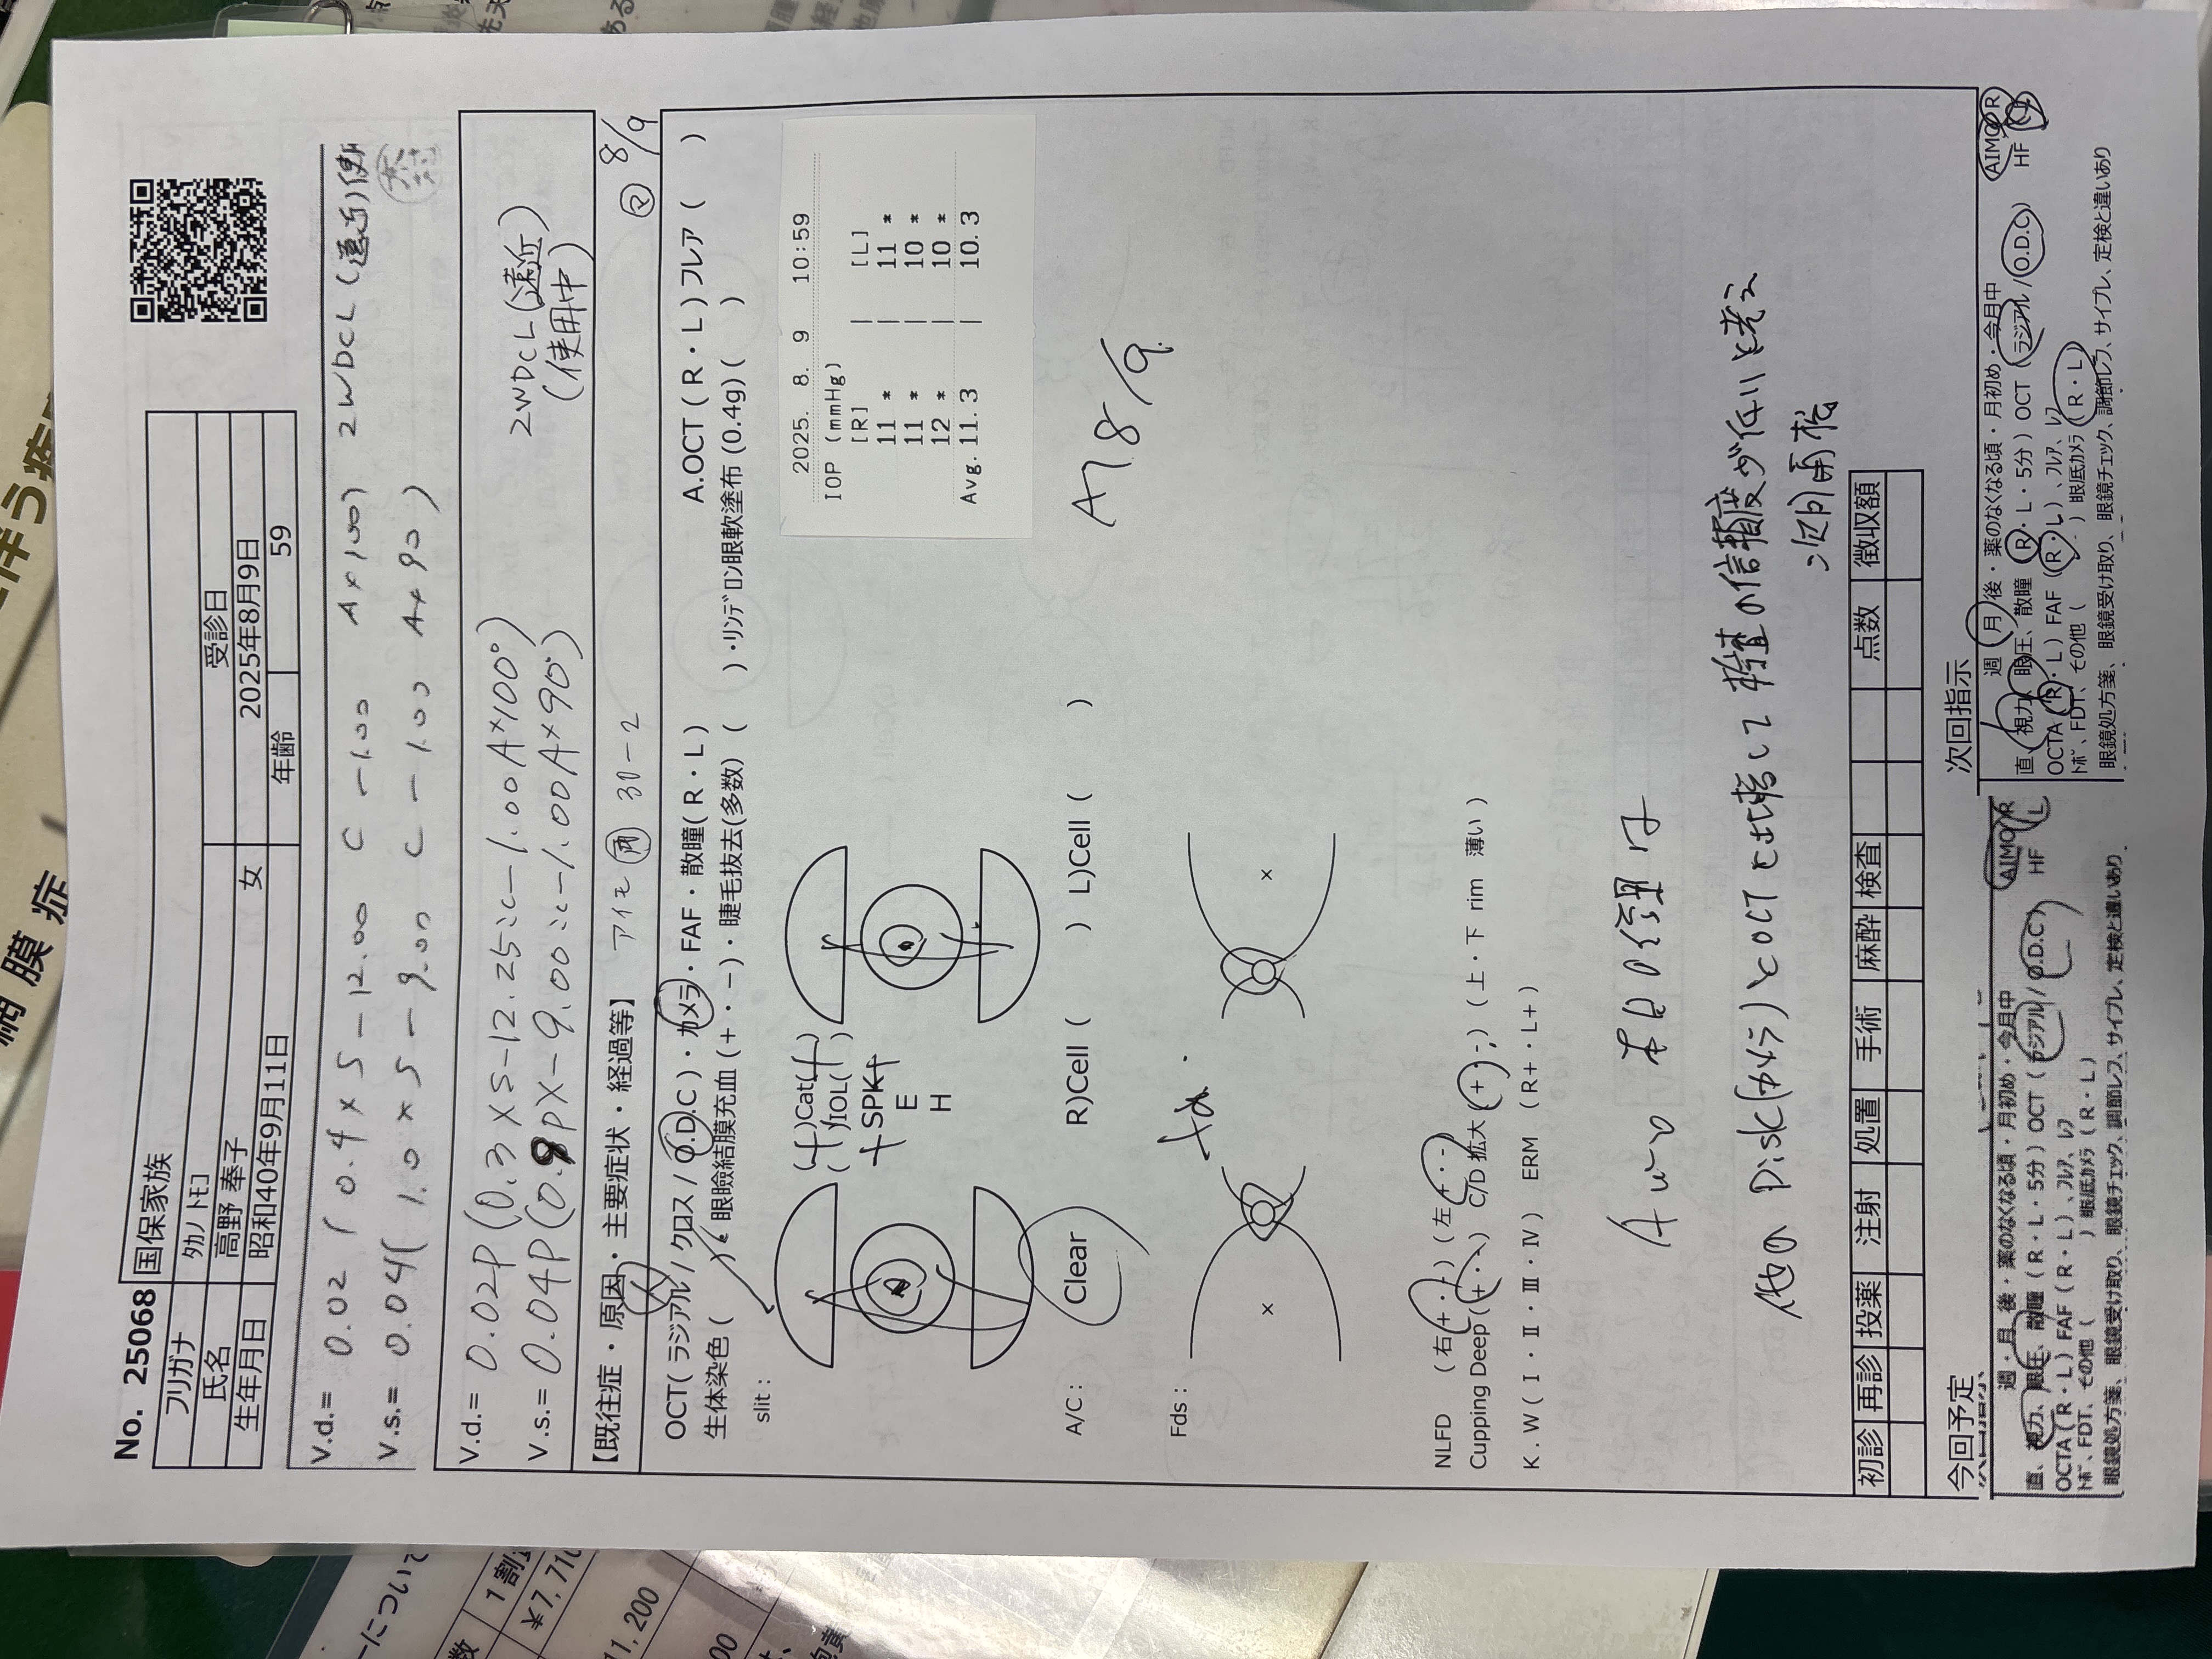 網膜症
伴う疾
No. 25068 国保家族
フリガナ タカノ トモコ
氏名 高野 奉子 女 受診日
生年月日 昭和40年9月11日 2025年8月9日
年齢 59
V.d.= 0.02 ( 0.4 × S - 12.00 C - 1.00 A×100) 2WDCL (遠近)使用
V.s.= 0.04( 1.0 × S - 9.00 C - 1.00 A×90 )
V.d.= 0.02P (0.3 × S-12.25:c-1.00 A×100°)
V.s.= 0.04P (0.9p X-9.00:c-1.00 A×90°)
2WDCL (遠近)
(使用中)
【既往症・原因・主要症状・経過等】 アイモ 両 30-2
マ 8/9
OCT( ラジアル / クロス / O.D.C )・カメラ・FAF・散瞳( R・L ) A.OCT ( R・L ) フレア ( )
生体染色 ( )・眼瞼結膜充血 (+・-)・睫毛抜去(多数) ( )・リンデロン眼軟塗布 (0.4g) ( )
slit :
(+)Cat(+)
( )IOL( )
+ SPK +
E
H
2025. 8. 9 10:59
IOP (mmHg)
[R] | [L]
11 * | 11 *
11 * | 10 *
12 * | 10 *
Avg. 11.3 | 10.3
A/C : Clear R)Cell ( ) L)Cell ( )
8/9
Fds :
NLFD (右 +・-) (左 +・-)
Cupping Deep (+・-) C/D 拡大 (+・-) (上・下 rim 薄い )
K.W( Ⅰ・Ⅱ・Ⅲ・Ⅳ) ERM (R+・L+)
本日の結果は
他の Disk(カメラ)とOCTと比較して 検査の信頼度が低いと考え
次回再検
初診 再診 投薬 注射 処置 手術 麻酔 検査 点数 徴収額
今回予定
次回指示
週・月 後・薬のなくなる頃・月初め・今月中 AIMO R
直、視力、眼圧、散瞳 ( R・L・5分 ) OCT ( ラジアル / O.D.C ) HF L
OCTA ( R・L ) FAF ( R・L ) 、フレア、レフ
トポ、FDT、その他 ( ) 眼底カメラ ( R・L )
眼鏡処方箋、眼鏡受け取り、眼鏡チェック、調節レフ、サイプレ、定検と違いあり
次回指示
週 月 後・薬のなくなる頃・月初め・今月中 AIMO R
直、視力、眼圧、散瞳 ( R・L・5分 ) OCT ( ラジアル / O.D.C ) HF L
OCTA ( R・L ) FAF ( R・L ) 、フレア、レフ
トポ、FDT、その他 ( ) 眼底カメラ ( R・L )
眼鏡処方箋、眼鏡受け取り、眼鏡チェック、調節レフ、サイプレ、定検と違いあり
ーについて
数 1割
¥7,710
11,200